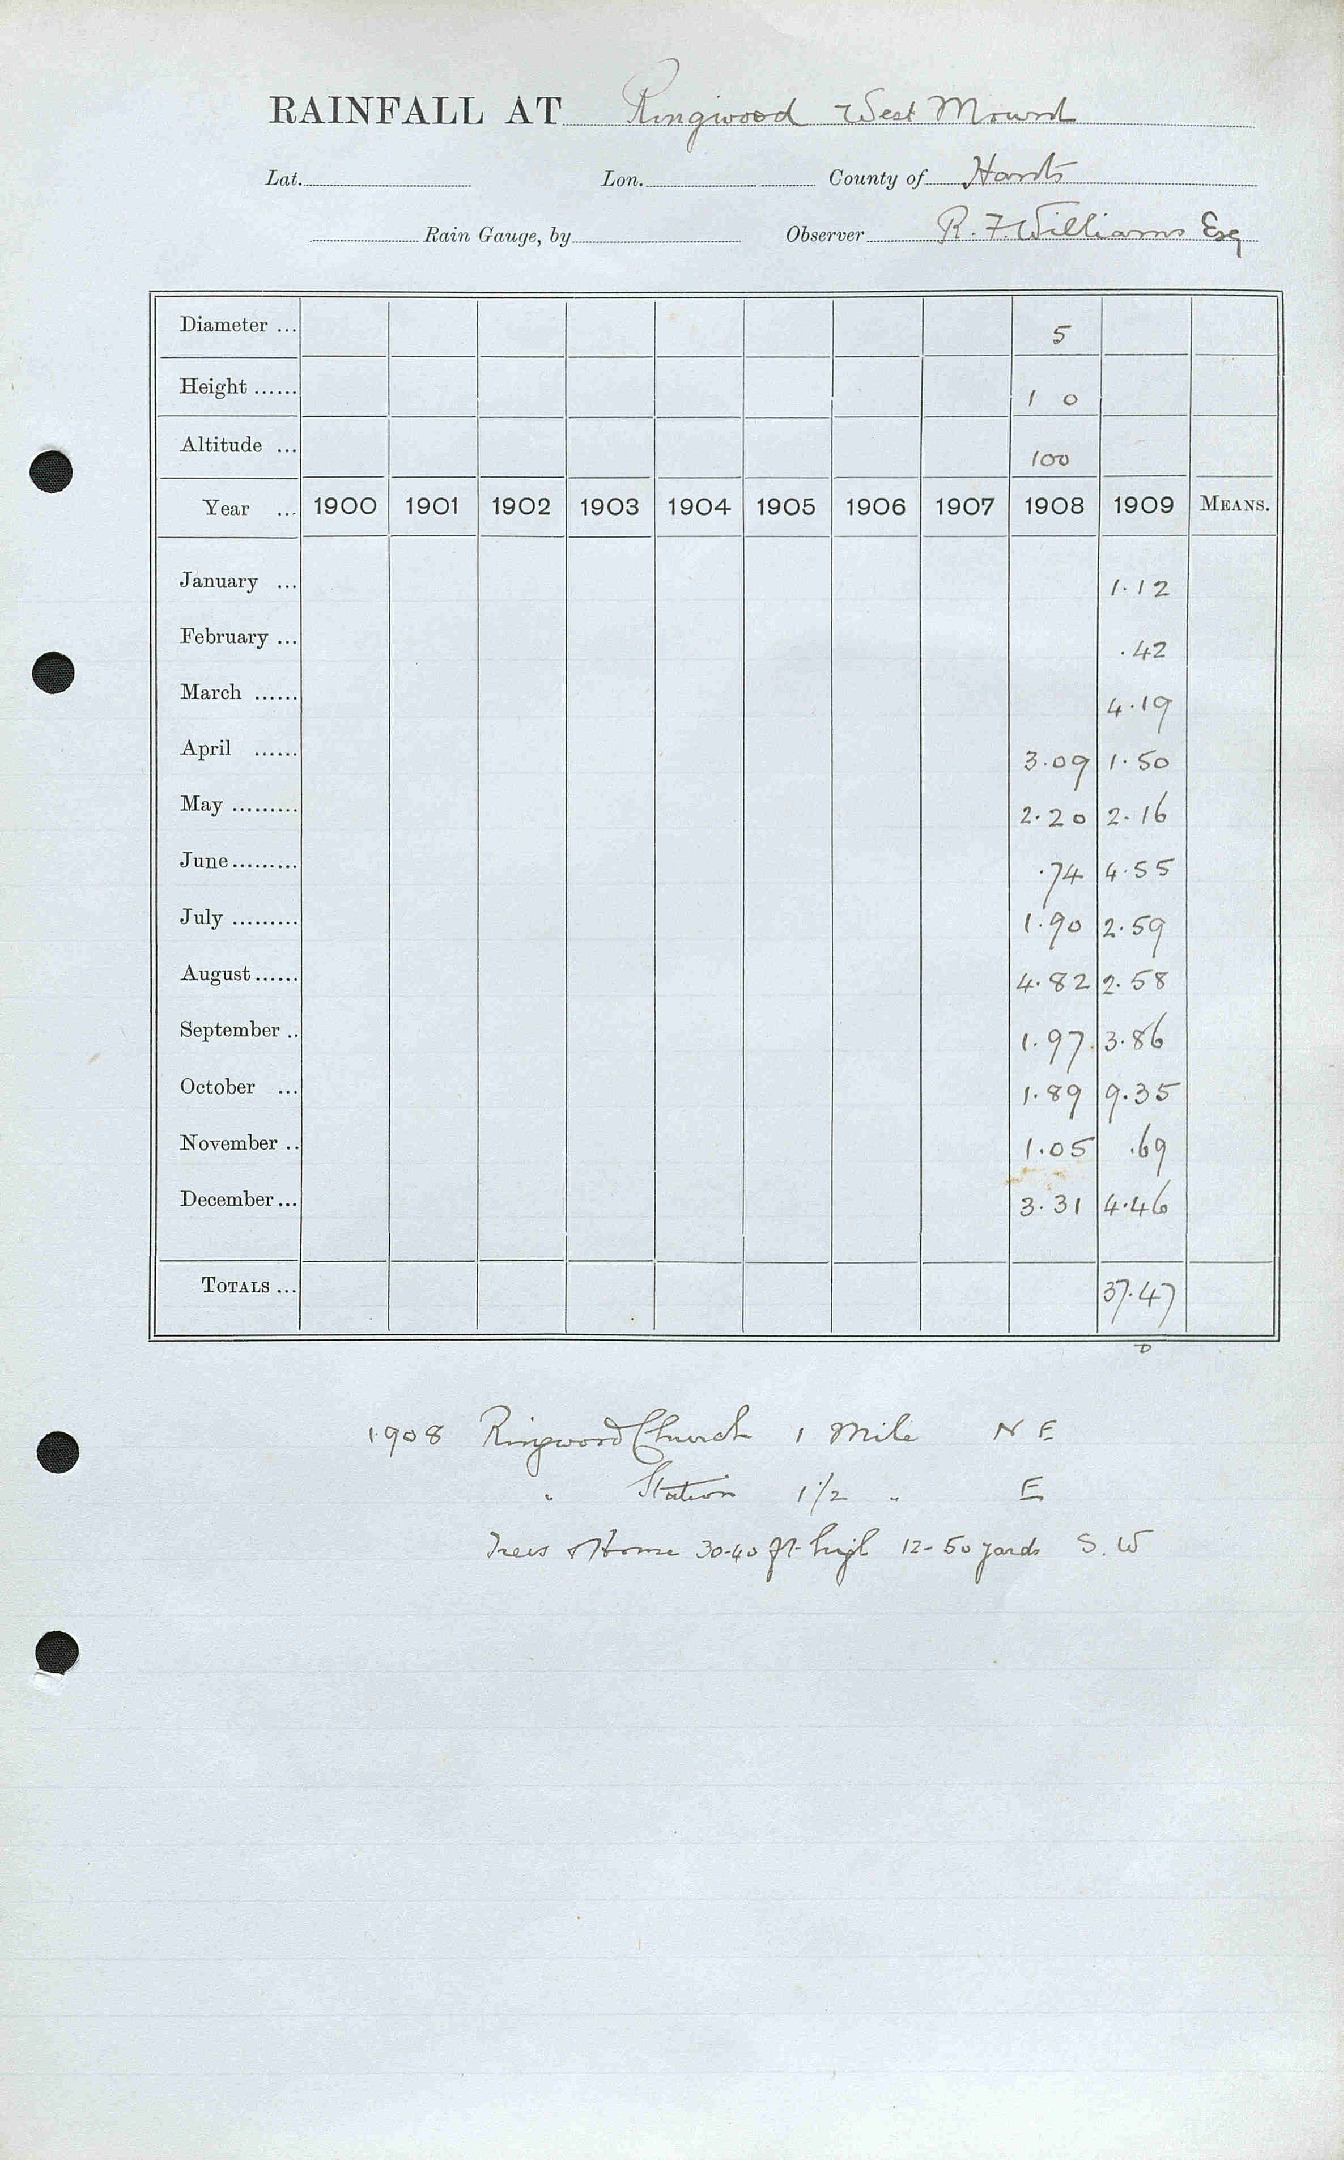 RAINFALL AT Ringwood West Mount
Lat. Lon. County of Hants
Rain Gauge, by Observer R. F. Williams Esq
Diameter ... 5
Height ...... 1 0
Altitude ... 100
Year ... 1900 1901 1902 1903 1904 1905 1906 1907 1908 1909 MEANS.
January ... 1.12
February ... .42
March ...... 4.19
April ...... 3.09 1.50
May ......... 2.20 2.16
June ......... .74 4.55
July ......... 1.90 2.59
August ...... 4.82 2.58
September .. 1.97 3.86
October ... 1.89 9.35
November .. 1.05 .69
December ... 3.31 4.46
TOTALS ... 37.47
1908 Ringwood Church 1 Mile N E
" Station 1 1/2 " E
Trees & House 30-40 ft. high 12-50 yards S. W